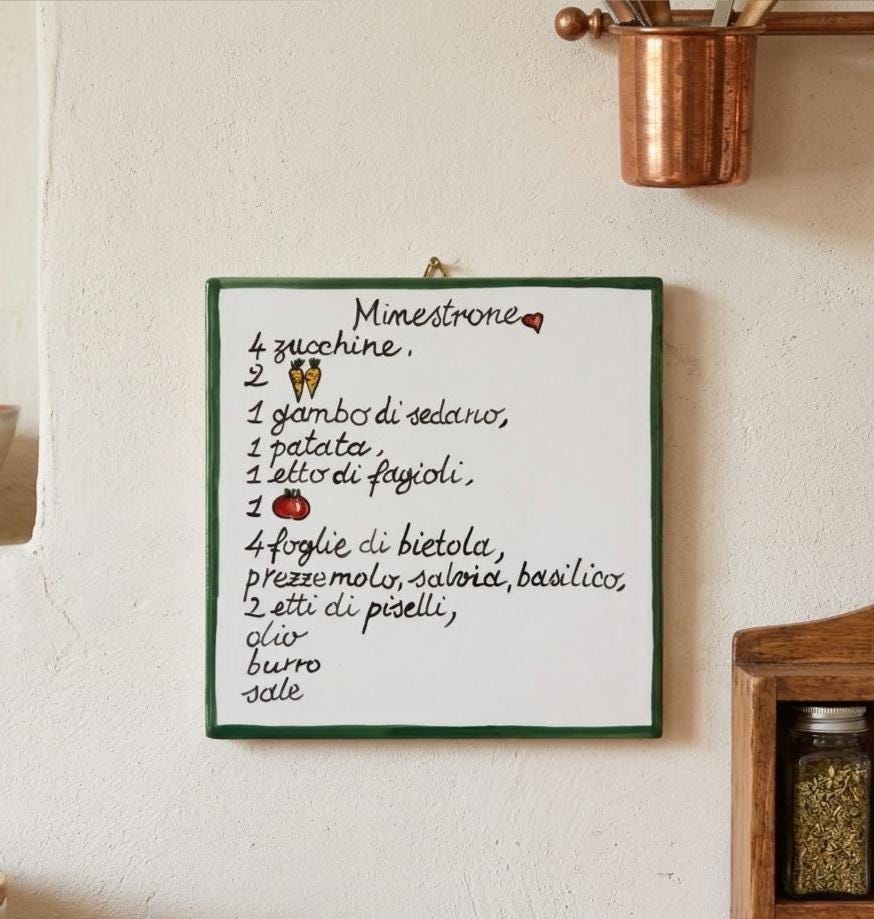 Minestrone
4 zucchine.
2
1 gambo di sedano,
1 patata,
1 etto di fagioli,
1
4 foglie di bietola,
prezzemolo, salvia, basilico,
2 etti di piselli,
olio
burro
sale